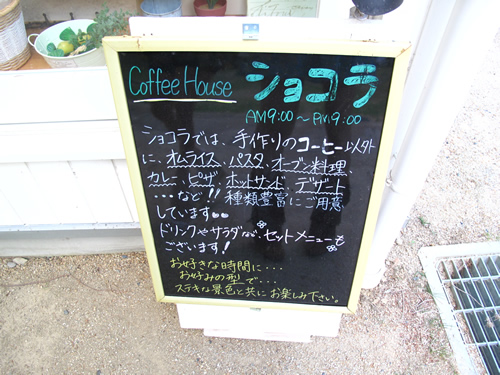 Coffee House ショコラ
AM 9:00 ～ PM 9:00
ショコラでは、手作りのコーヒー以外
に、オムライス、パスタ、オーブン料理、
カレー、ピザ、ホットサンド、デザート
…など!! 種類豊富にご用意
しています
ドリンクやサラダなど、セットメニューも
ございます!
お好きな時間に・・・
お好みの型で・・・
ステキな景色と共にお楽しみ下さい。